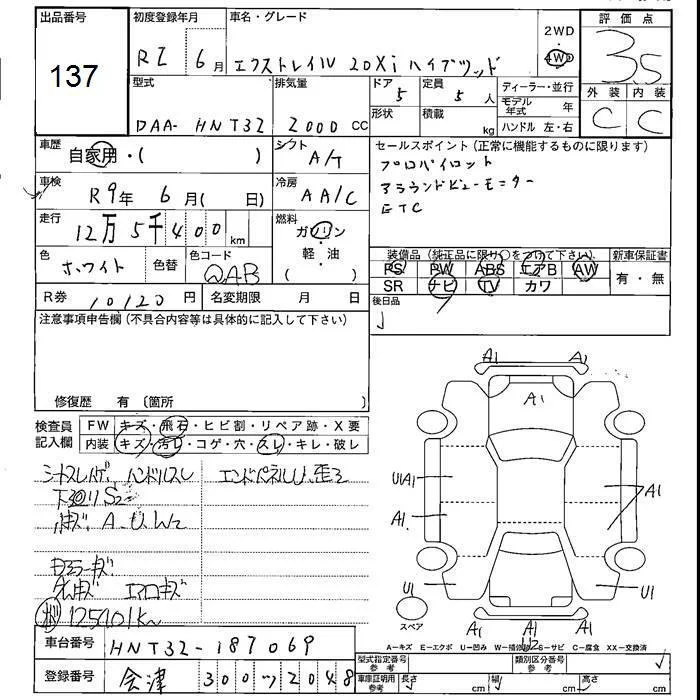 出品番号
137
初度登録年月
車名・グレード
R2 6月 エクストレイル 20Xi ハイブリッド
2WD
4WD
評価点
3.5
外装 内装
C C
型式
DAA- HNT32
排気量
2000 CC
ドア 5
形状
定員 5 人
積載 kg
ディーラー・並行
モデル年式 年
ハンドル 左・右
車歴
自家用・( )
シフト
A/T
セールスポイント(正常に機能するものに限ります)
プロパイロット
アラウンドビューモニター
ETC
車検
R9年 6月( 日)
冷房
AA/C
走行
12万5千400 km
燃料
ガソリン
・
軽・油
( )
色
ホワイト
色替
色コード
QAB
装備品(純正品に限り〇をつけて下さい)
PS PW ABS エアB AW
SR ナビ TV カワ
新車保証書
有・無
R券 10120 円
名変期限 月 日
後日品
注意事項申告欄(不具合内容等は具体的に記入して下さい)
修復歴 有〔箇所 〕
検査員記入欄
FW キズ・飛石・ヒビ割・リペア跡・X要
内装 キズ・汚レ・コゲ・穴・スレ・キレ・破レ
シートスレハゲ ハンドルスレ
エンドパネルU歪ミ
下廻りS2
A.U.W2
ドアミラーキズ
エアロキズ
125401K
A1 A1
A1
UA1
A1
A1
U1
U1
A1 A1 A1
U2
スペア
A-キズ E-エクボ U-凹み W-補修跡 S-サビ C-腐食 XX-交換済
車台番号
HNT32-187069
登録番号
会津 300 つ 2048
型式指定番号
参考
類別区分番号
参考
車庫証明用
参考
長さ cm 幅 cm 高さ cm